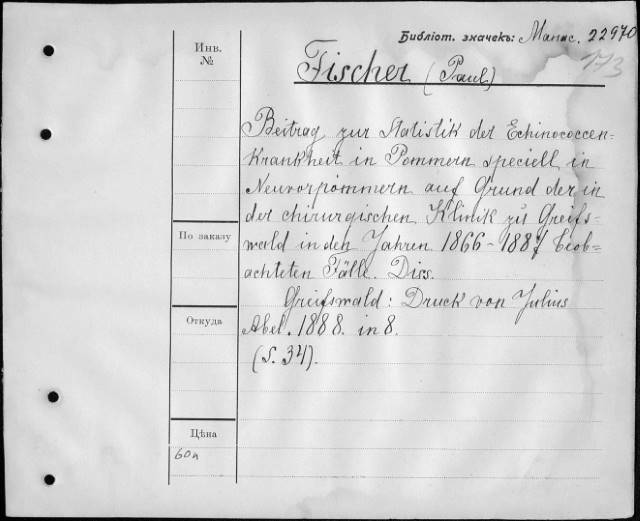 Библіот. значекъ: Манас. 22970
173
Инв.
№
Fischer (Paul)
Beitrag zur Statistik der Echinococcen=
Krankheit in Pommern speciell in
Neuvorpommern auf Grund der in
der chirurgischen Klinik zu Greifs=
wald in den Jahren 1866-1887 beob=
achteten Fälle. Diss.
Greifswald: Druck von Julius
Abel. 1888. in 8.
(S. 34).
По заказу
Откуда
Цѣна
60